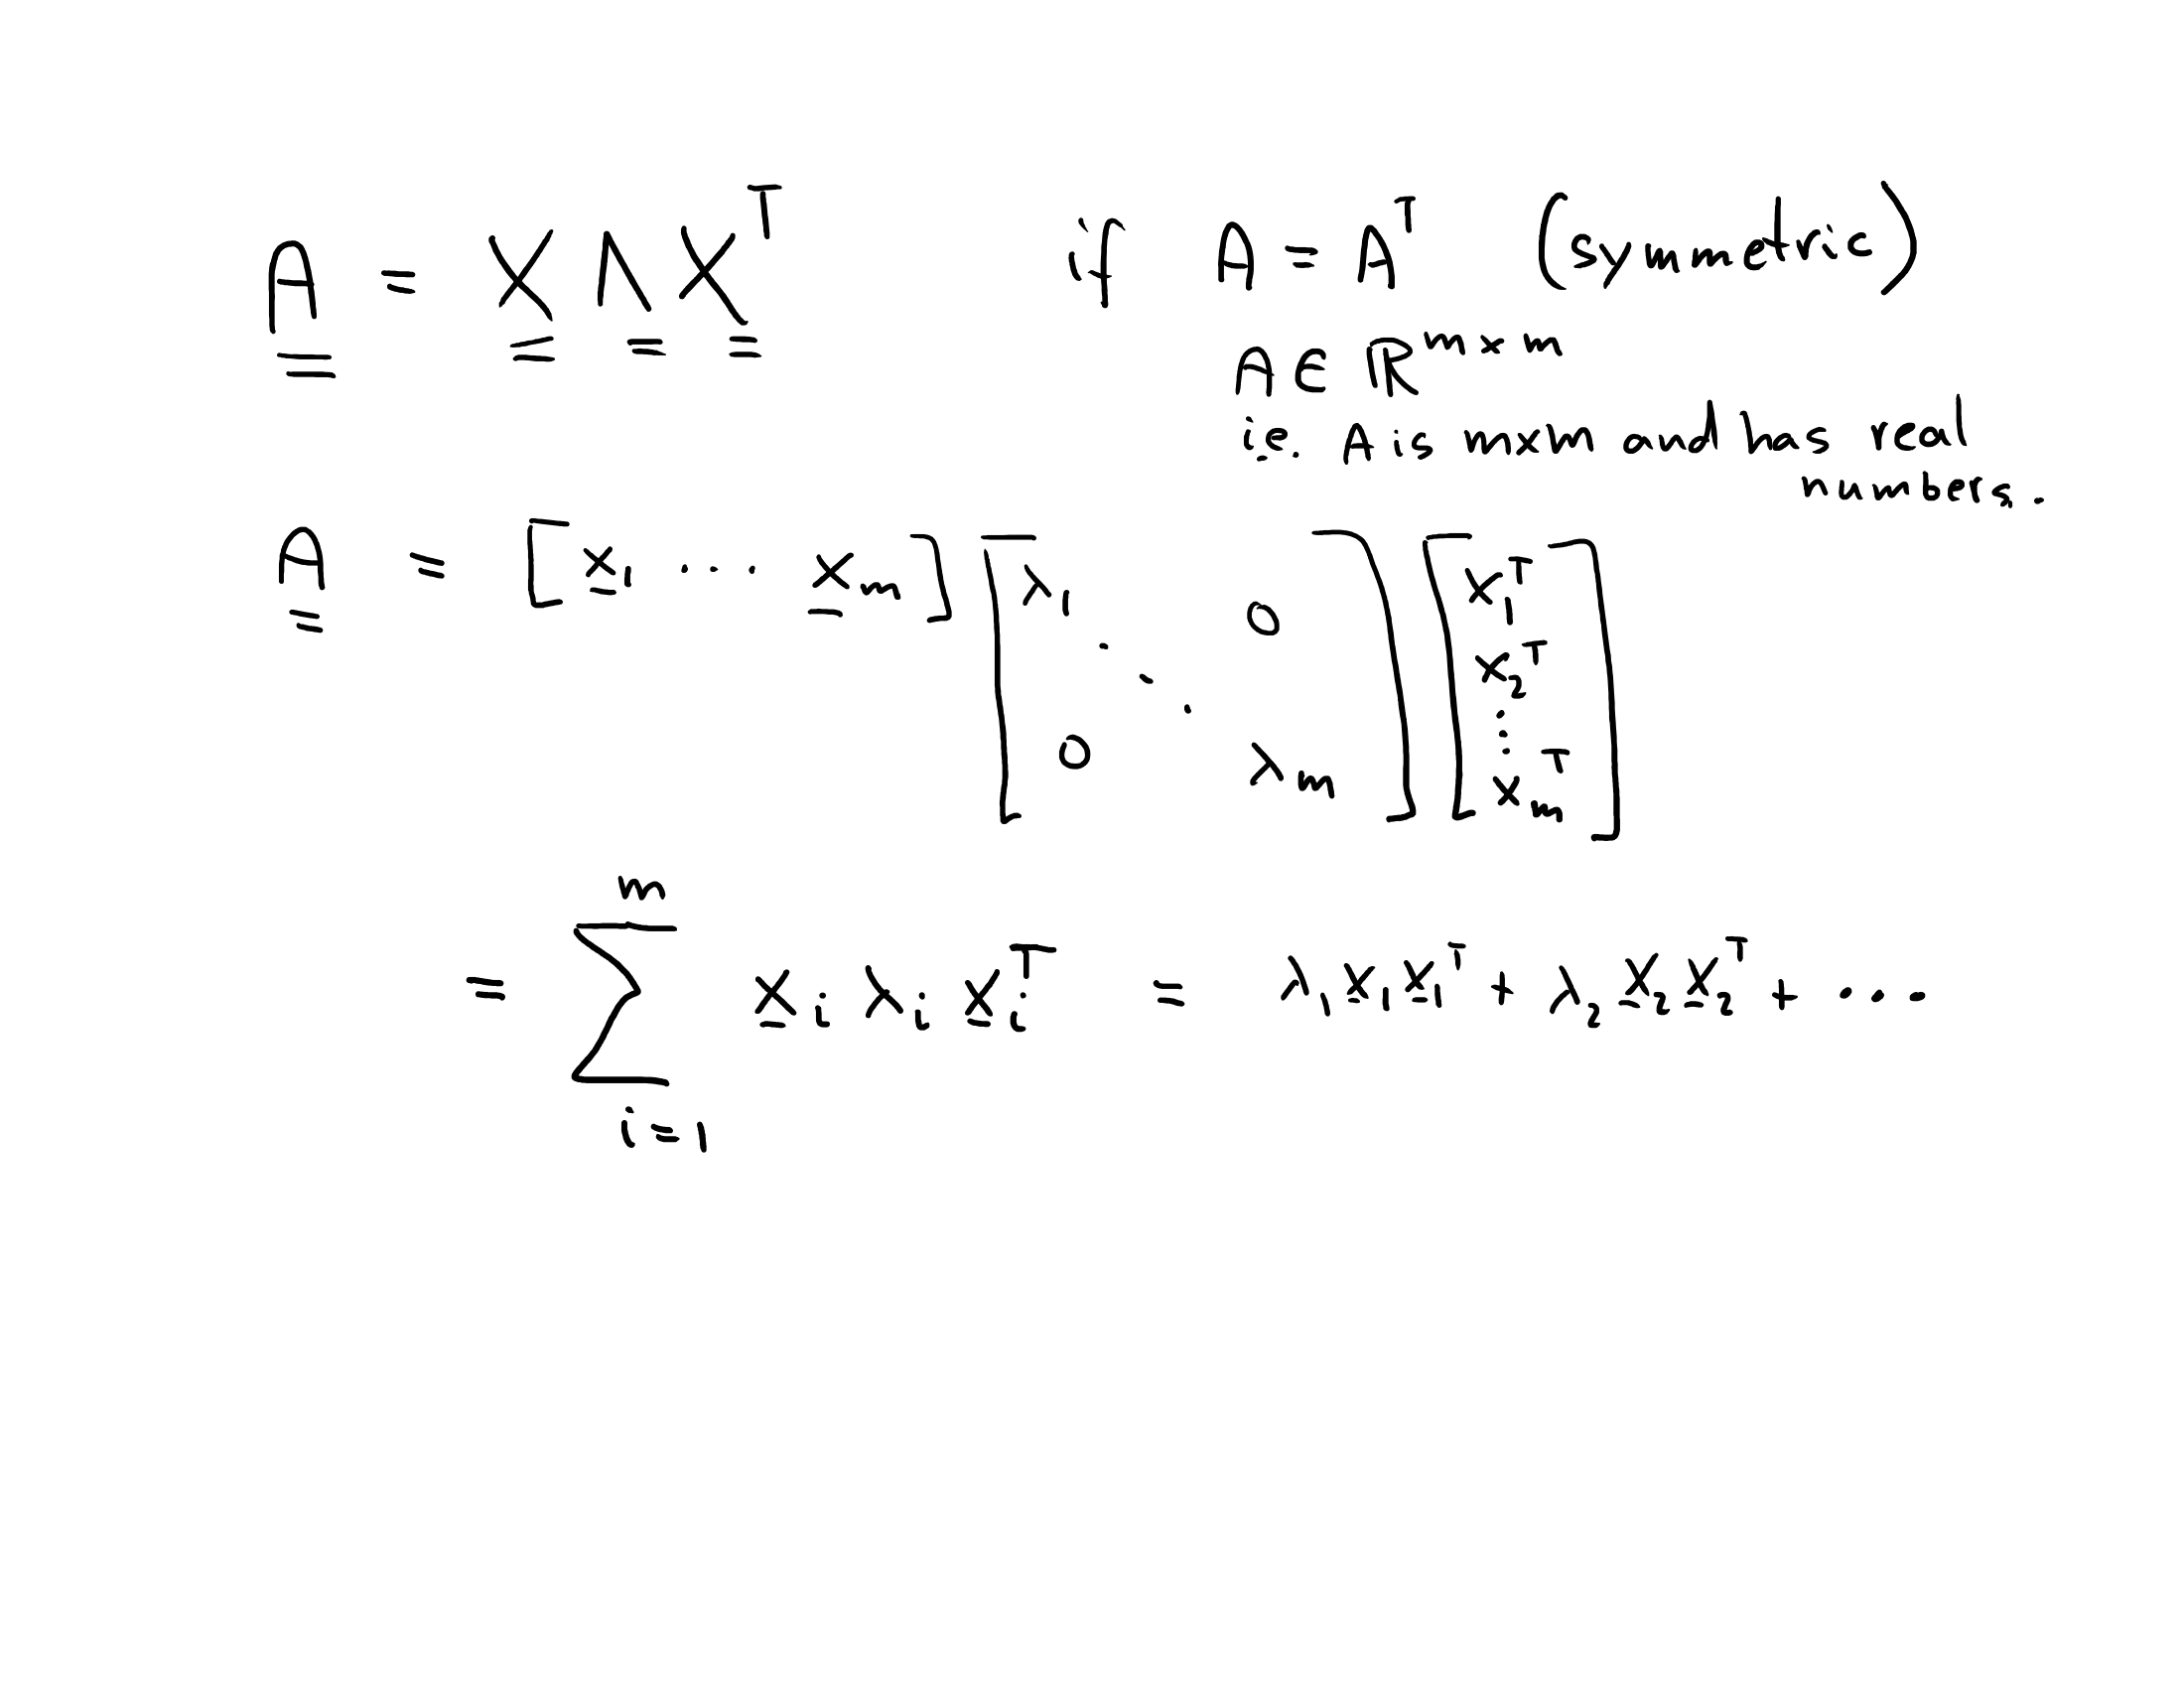 A = X Λ Xᵀ if A = Aᵀ (symmetric)
A ∈ ℝᵐˣᵐ
i.e. A is mxm and has real
numbers.
A = [x₁ ... xₘ] [λ₁ 0 ⋱ 0 λₘ] [x₁ᵀ x₂ᵀ ⋮ xₘᵀ]
= ∑ᵢ₌₁ᵐ xᵢ λᵢ xᵢᵀ = λ₁ x₁ x₁ᵀ + λ₂ x₂ x₂ᵀ + ...